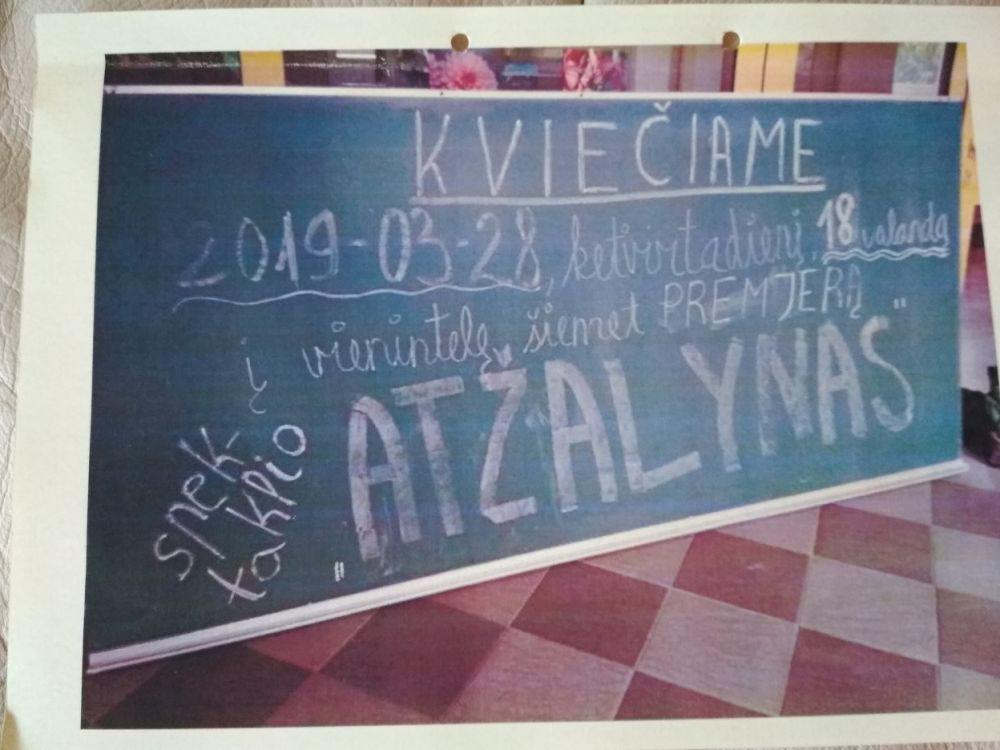 KVIEČIAME
2019-03-28, ketvirtadienį, 18 valandą
į vienintelę šiemet PREMJERĄ
spek-
taklio
„ATŽALYNAS"